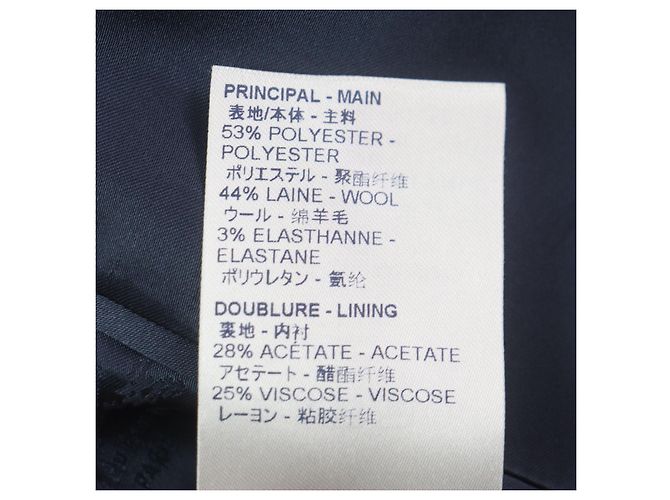 PRINCIPAL - MAIN
表地/本体 - 主料
53% POLYESTER -
POLYESTER
ポリエステル - 聚酯纤维
44% LAINE - WOOL
ウール - 绵羊毛
3% ELASTHANNE -
ELASTANE
ポリウレタン - 氨纶
DOUBLURE - LINING
裏地 - 内衬
28% ACÉTATE - ACETATE
アセテート - 醋酯纤维
25% VISCOSE - VISCOSE
レーヨン - 粘胶纤维